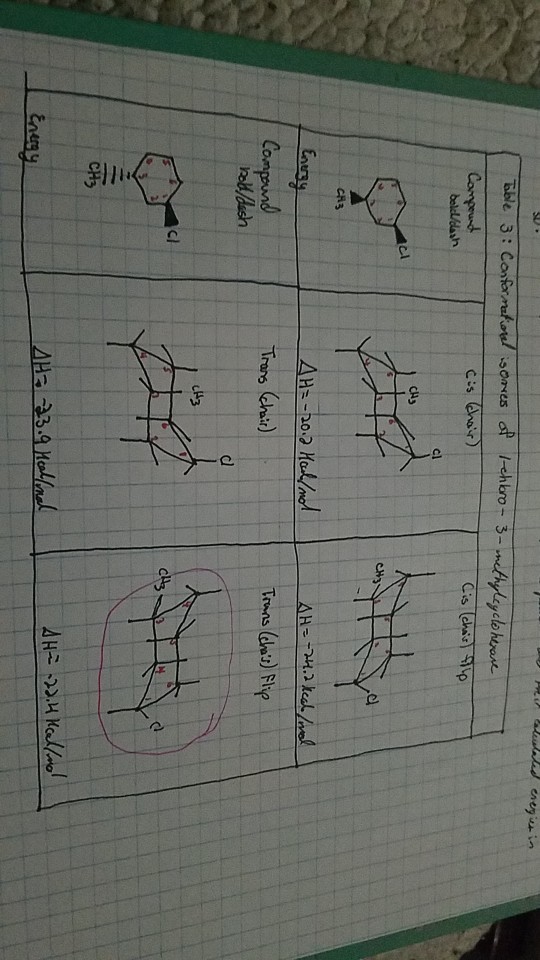 Table 3: Conformational isomers of 1-chloro-3-methylcyclohexane
Compound
bold/dash
Cis (chair)
Cis (chair) flip
Cl
CH3
CH3
Cl
CH3
Cl
Energy
ΔH = -20.2 Kcal/mol
ΔH = -24.2 Kcal/mol
Compound
bold/dash
Trans (chair)
Trans (chair) Flip
Cl
CH3
CH3
Cl
CH3
Cl
Energy
ΔH = -23.9 Kcal/mol
ΔH = -22.4 Kcal/mol